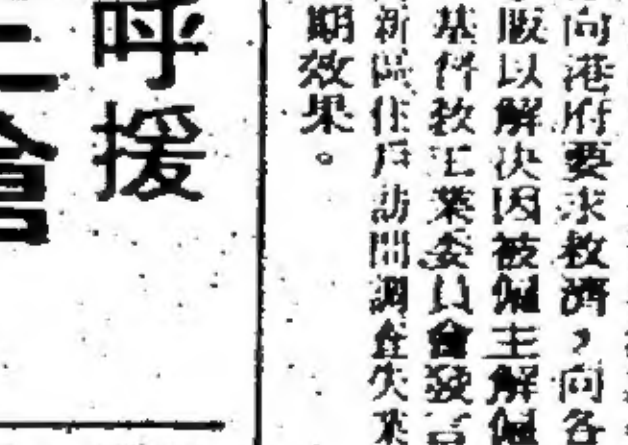 向港府要求救濟，向各
飯以解決因被僱主解僱
基件教工業委員會發言
新區住戶訪問調查失業
期效果。
呼援
會